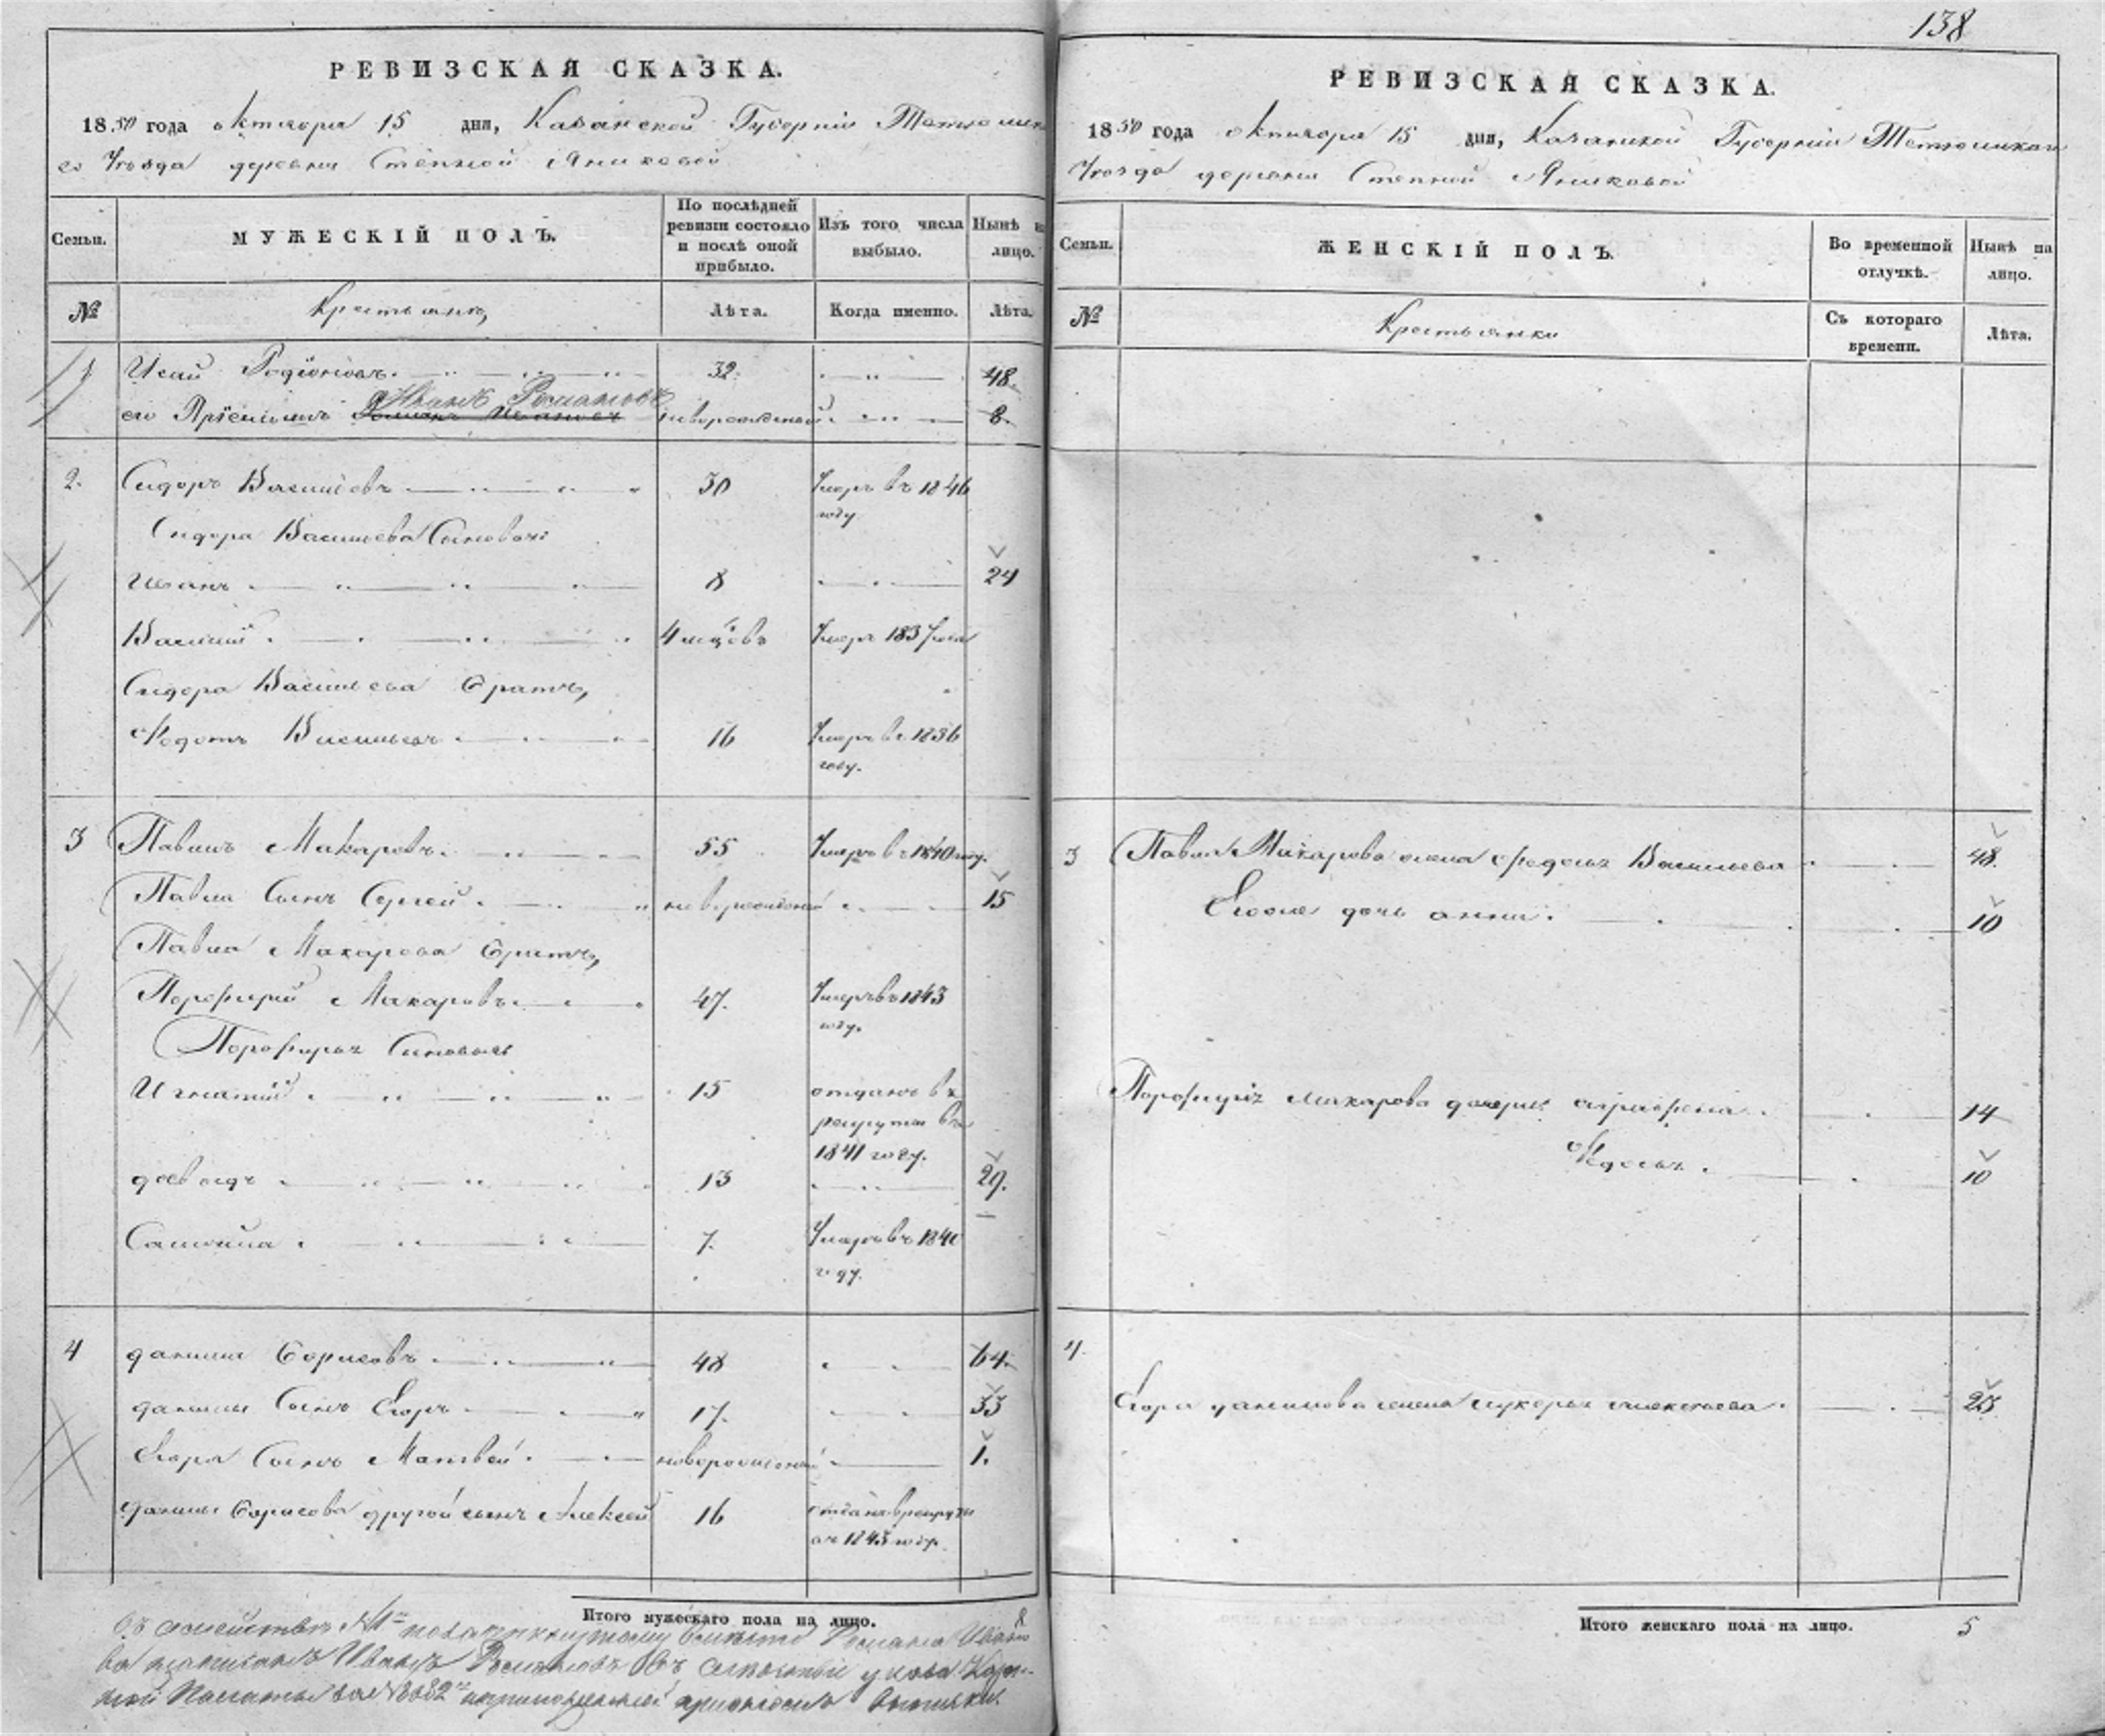 138
РЕВИЗСКАЯ СКАЗКА.
1850 года октября 15 дня, Казанской Губерніи
Уѣзда деревни Степной Яниковой
Семьи.
МУЖЕСКІЙ ПОЛЪ.
По послѣдней ревизіи состояло и послѣ оной прибыло.
Изъ того числа выбыло.
Нынѣ на лицо.
№
Крестьяне,
Лѣта.
Когда именно.
Лѣта.
1 Исай Родіоновъ. 32. 48.
его Пріемышъ Иванъ Романовъ Романъ Ивановъ новорожденный. 8.
2. Сидоръ Васильевъ 30 Умеръ въ 1846 году
Сидора Васильева Сыновья:
Иванъ 8 24
Василий 4 Умеръ 1837
Сидора Васильева братъ,
Федотъ Васильевъ 16 Умеръ въ 1836 году.
3 Павелъ Макаровъ. 55 Умеръ въ 1840 году.
Павла Сынъ Сергей новорожденный 15
Павла Макарова братъ,
Порфирий Макаровъ 47. Умеръ въ 1843 году.
Порфирья Сыновья
Игнатий 15 отданъ въ рекруты въ 1841 году.
13 29.
7. Умеръ въ году.
4 данила Борисовъ 48 64.
данилы Сынъ Егоръ 17. 33
Егора Сынъ Матвей новорожденный 1.
данилы Борисова другой сынъ Алексей 16 отданъ в рекруты въ 1843 году.
Итого мужескаго пола на лицо. 8
въ семействѣ №1 по вместо Романа Ивано
ва Иванъ Романовъ въ указа
Палаты за №
РЕВИЗСКАЯ СКАЗКА.
1850 года октября 15 дня, Казанской Губерніи
Уѣзда деревни Степной Яниковой
Семьи.
ЖЕНСКІЙ ПОЛЪ.
Во временной отлучкѣ.
Нынѣ на лицо.
№
Крестьянки
Съ котораго времени.
Лѣта.
3 Павла Макарова жена Федосья Васильева 48.
Его же дочь анна. 10
Порфирія Макарова дочери: аграфена. 14
Федосья. 10
4. Егора данилова жена лукерья алексеева. 25
Итого женскаго пола на лицо. 5